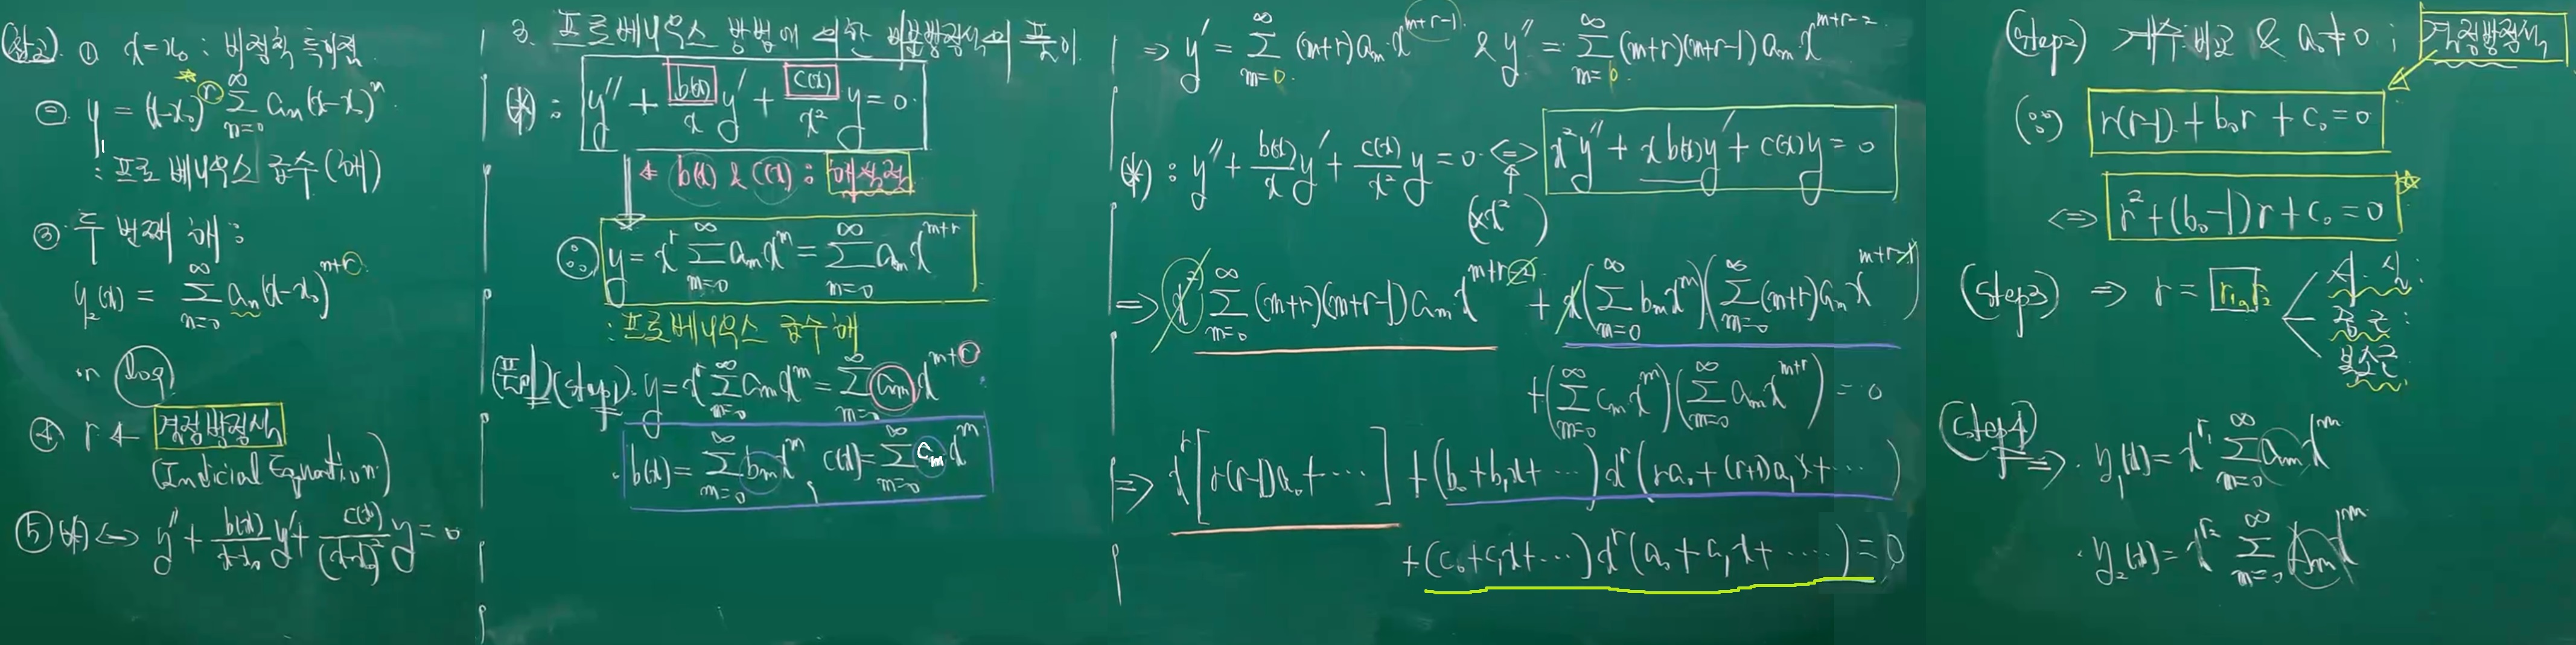 (참고) ① x=x₀ : 비정칙 특이점
② y = (x-x₀)^r ∑_{n=0}^{∞} a_n(x-x₀)^n
: 프로베니우스 급수(해)
③ 두 번째 해 :
y₂(x) = ∑_{n=0}^{∞} a_n(x-x₀)^{n+r}
log
④ r ← 결정방정식
(Indicial Equation)
⑤ (*) ⟺ y'' + b(x)/(x-x₀) y' + c(x)/(x-x₀)² y = 0
3. 프로베니우스 방법에 의한 미분방정식의 풀이
(*) : y'' + b(x)/x y' + c(x)/x² y = 0
← b(x) & c(x) : 해석적
∴ y = x^r ∑_{m=0}^{∞} a_m x^m = ∑_{m=0}^{∞} a_m x^{m+r}
: 프로베니우스 급수해
(풀이) (step1). y = x^r ∑_{m=0}^{∞} a_m x^m = ∑_{m=0}^{∞} a_m x^{m+r}
b(x) = ∑_{m=0}^{∞} b_m x^m, c(x) = ∑_{m=0}^{∞} c_m x^m
⇒ y' = ∑_{m=0}^{∞} (m+r)a_m x^{m+r-1} & y'' = ∑_{m=0}^{∞} (m+r)(m+r-1)a_m x^{m+r-2}
(*) : y'' + b(x)/x y' + c(x)/x² y = 0 ⟺ x²y'' + x b(x)y' + c(x)y = 0
(×x²)
⇒ x² ∑_{m=0}^{∞} (m+r)(m+r-1)a_m x^{m+r-2} + x(∑_{m=0}^{∞} b_m x^m)(∑_{m=0}^{∞} (m+r)a_m x^{m+r-1})
+(∑_{m=0}^{∞} c_m x^m)(∑_{m=0}^{∞} a_m x^{m+r}) = 0
⇒ x^r[r(r-1)a₀+⋯⋯] + (b₀+b₁x+⋯)x^r(ra₀+(r+1)a₁x+⋯)
+(c₀+c₁x+⋯)x^r(a₀+a₁x+⋯⋯) = 0
(step2) 계수비교 & a₀≠0 ; 결정방정식
(∵) r(r-1)+b₀r+c₀=0
⟺ r²+(b₀-1)r+c₀=0
(step3) ⇒ r = r₁, r₂
서. 실.
중근
복소근
(step4) ⇒ y₁(x) = x^{r₁} ∑_{m=0}^{∞} a_m x^m
y₂(x) = x^{r₂} ∑_{m=0}^{∞} A_m x^m